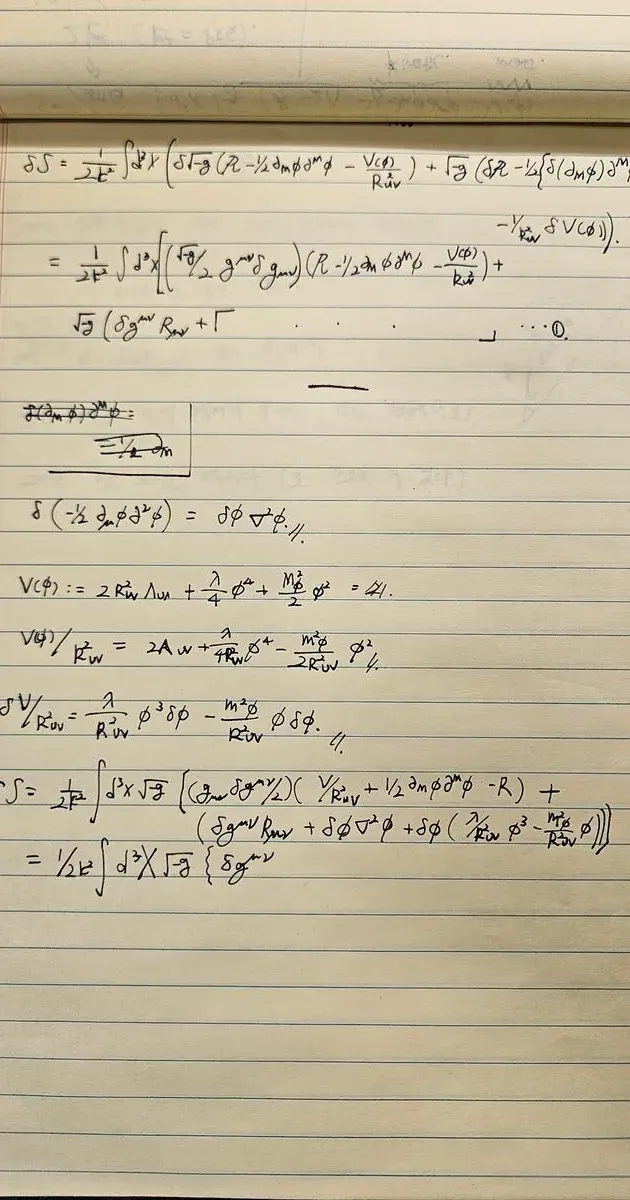 δS = 1/2k² ∫d³x ( δ√-g (R - 1/2 ∂_mφ∂^mφ - V(φ)/R²_uv ) + √-g (δR - 1/2 {δ(∂_mφ)∂^m
- 1/R²_uv δV(φ)) ).
= 1/2k² ∫ d³x [ ( √-g/2 g^μν δg_μν ) (R - 1/2 ∂_mφ∂^mφ - V(φ)/R²_uv ) +
√-g ( δg^μν R_μν + Γ . . . ⌟ ...①.
δ(-1/2 ∂_μφ∂²φ) = δφ∇²φ. //.
V(φ) := 2R²_uv Λ_uv + λ/4 φ⁴ + m²_φ/2 φ²
V(φ)/R²_uv = 2Λ_uv + λ/4R²_uv φ⁴ - m²φ/2R²_uv φ² //.
δV/R²_uv = λ/R²_uv φ³δφ - m²φ/R²_uv φδφ. //.
S = 1/2k² ∫d³x √-g [ (g_μν δg^μν/2) ( V/R²_uv + 1/2 ∂_mφ∂^mφ - R ) +
( δg^μν R_μν + δφ∇²φ + δφ ( λ/R²_uv φ³ - m²_φ/R²_uv φ )) ]
= 1/2k² ∫ d³x √-g { δg^μν